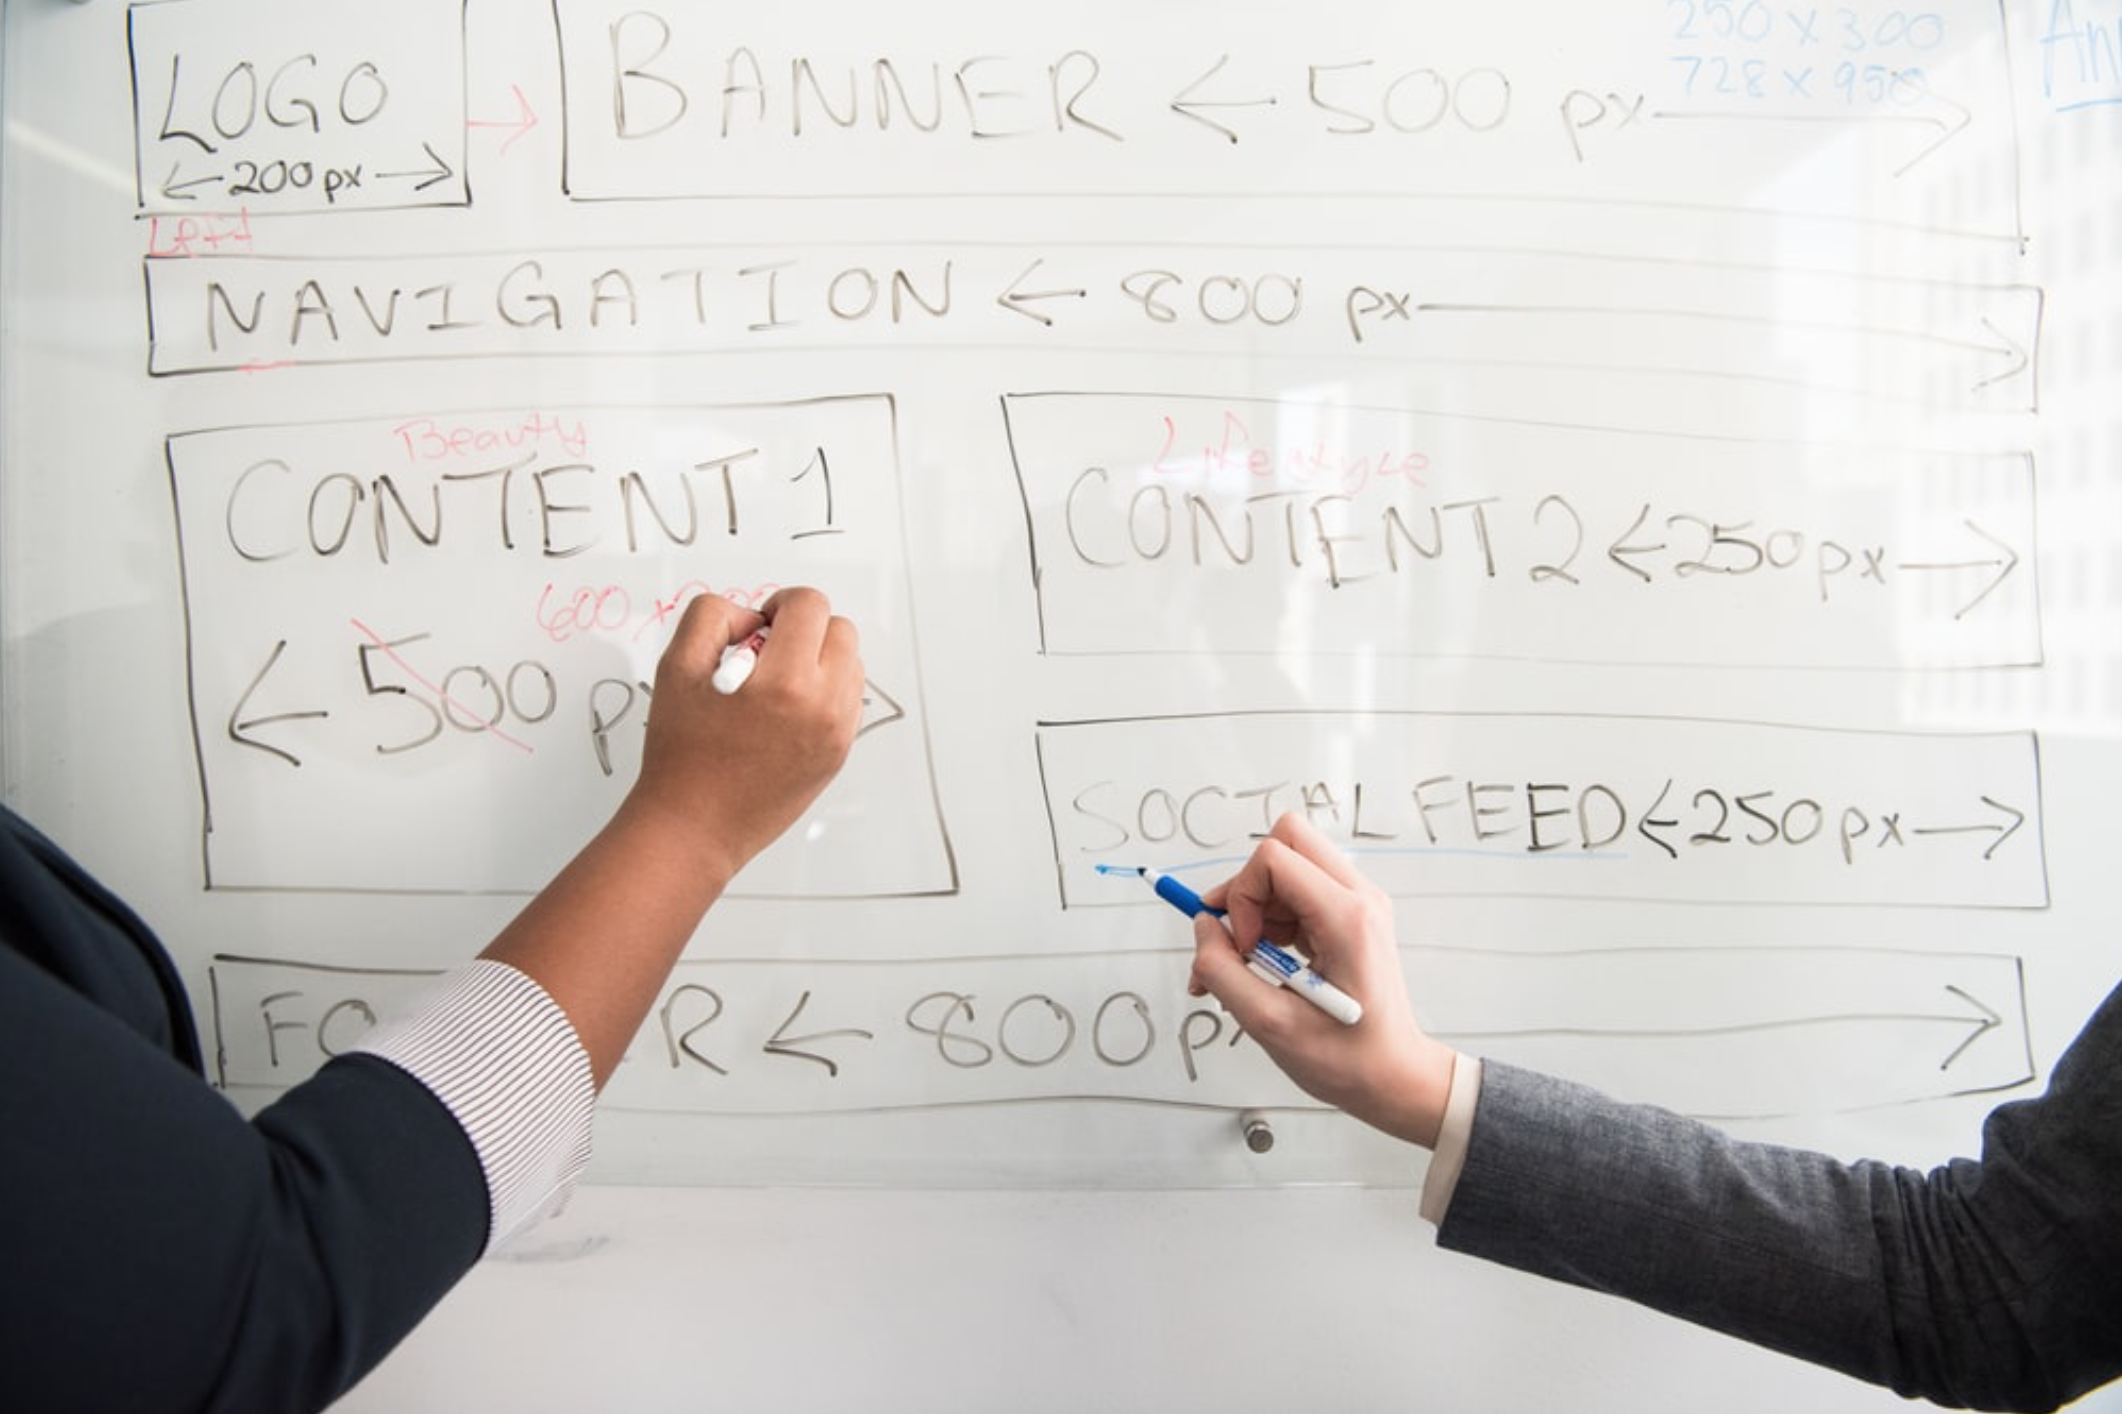 LOGO
←200px→
→
BANNER ← 500 px→
250 x 300
728 x 950
An
Left
NAVIGATION ← 800 px→
Beauty
CONTENT 1
600 x
← 500 p
Lifestyle
CONTENT 2 ←250px→
SOCIAL FEED←250px→
FO R ← 800px→